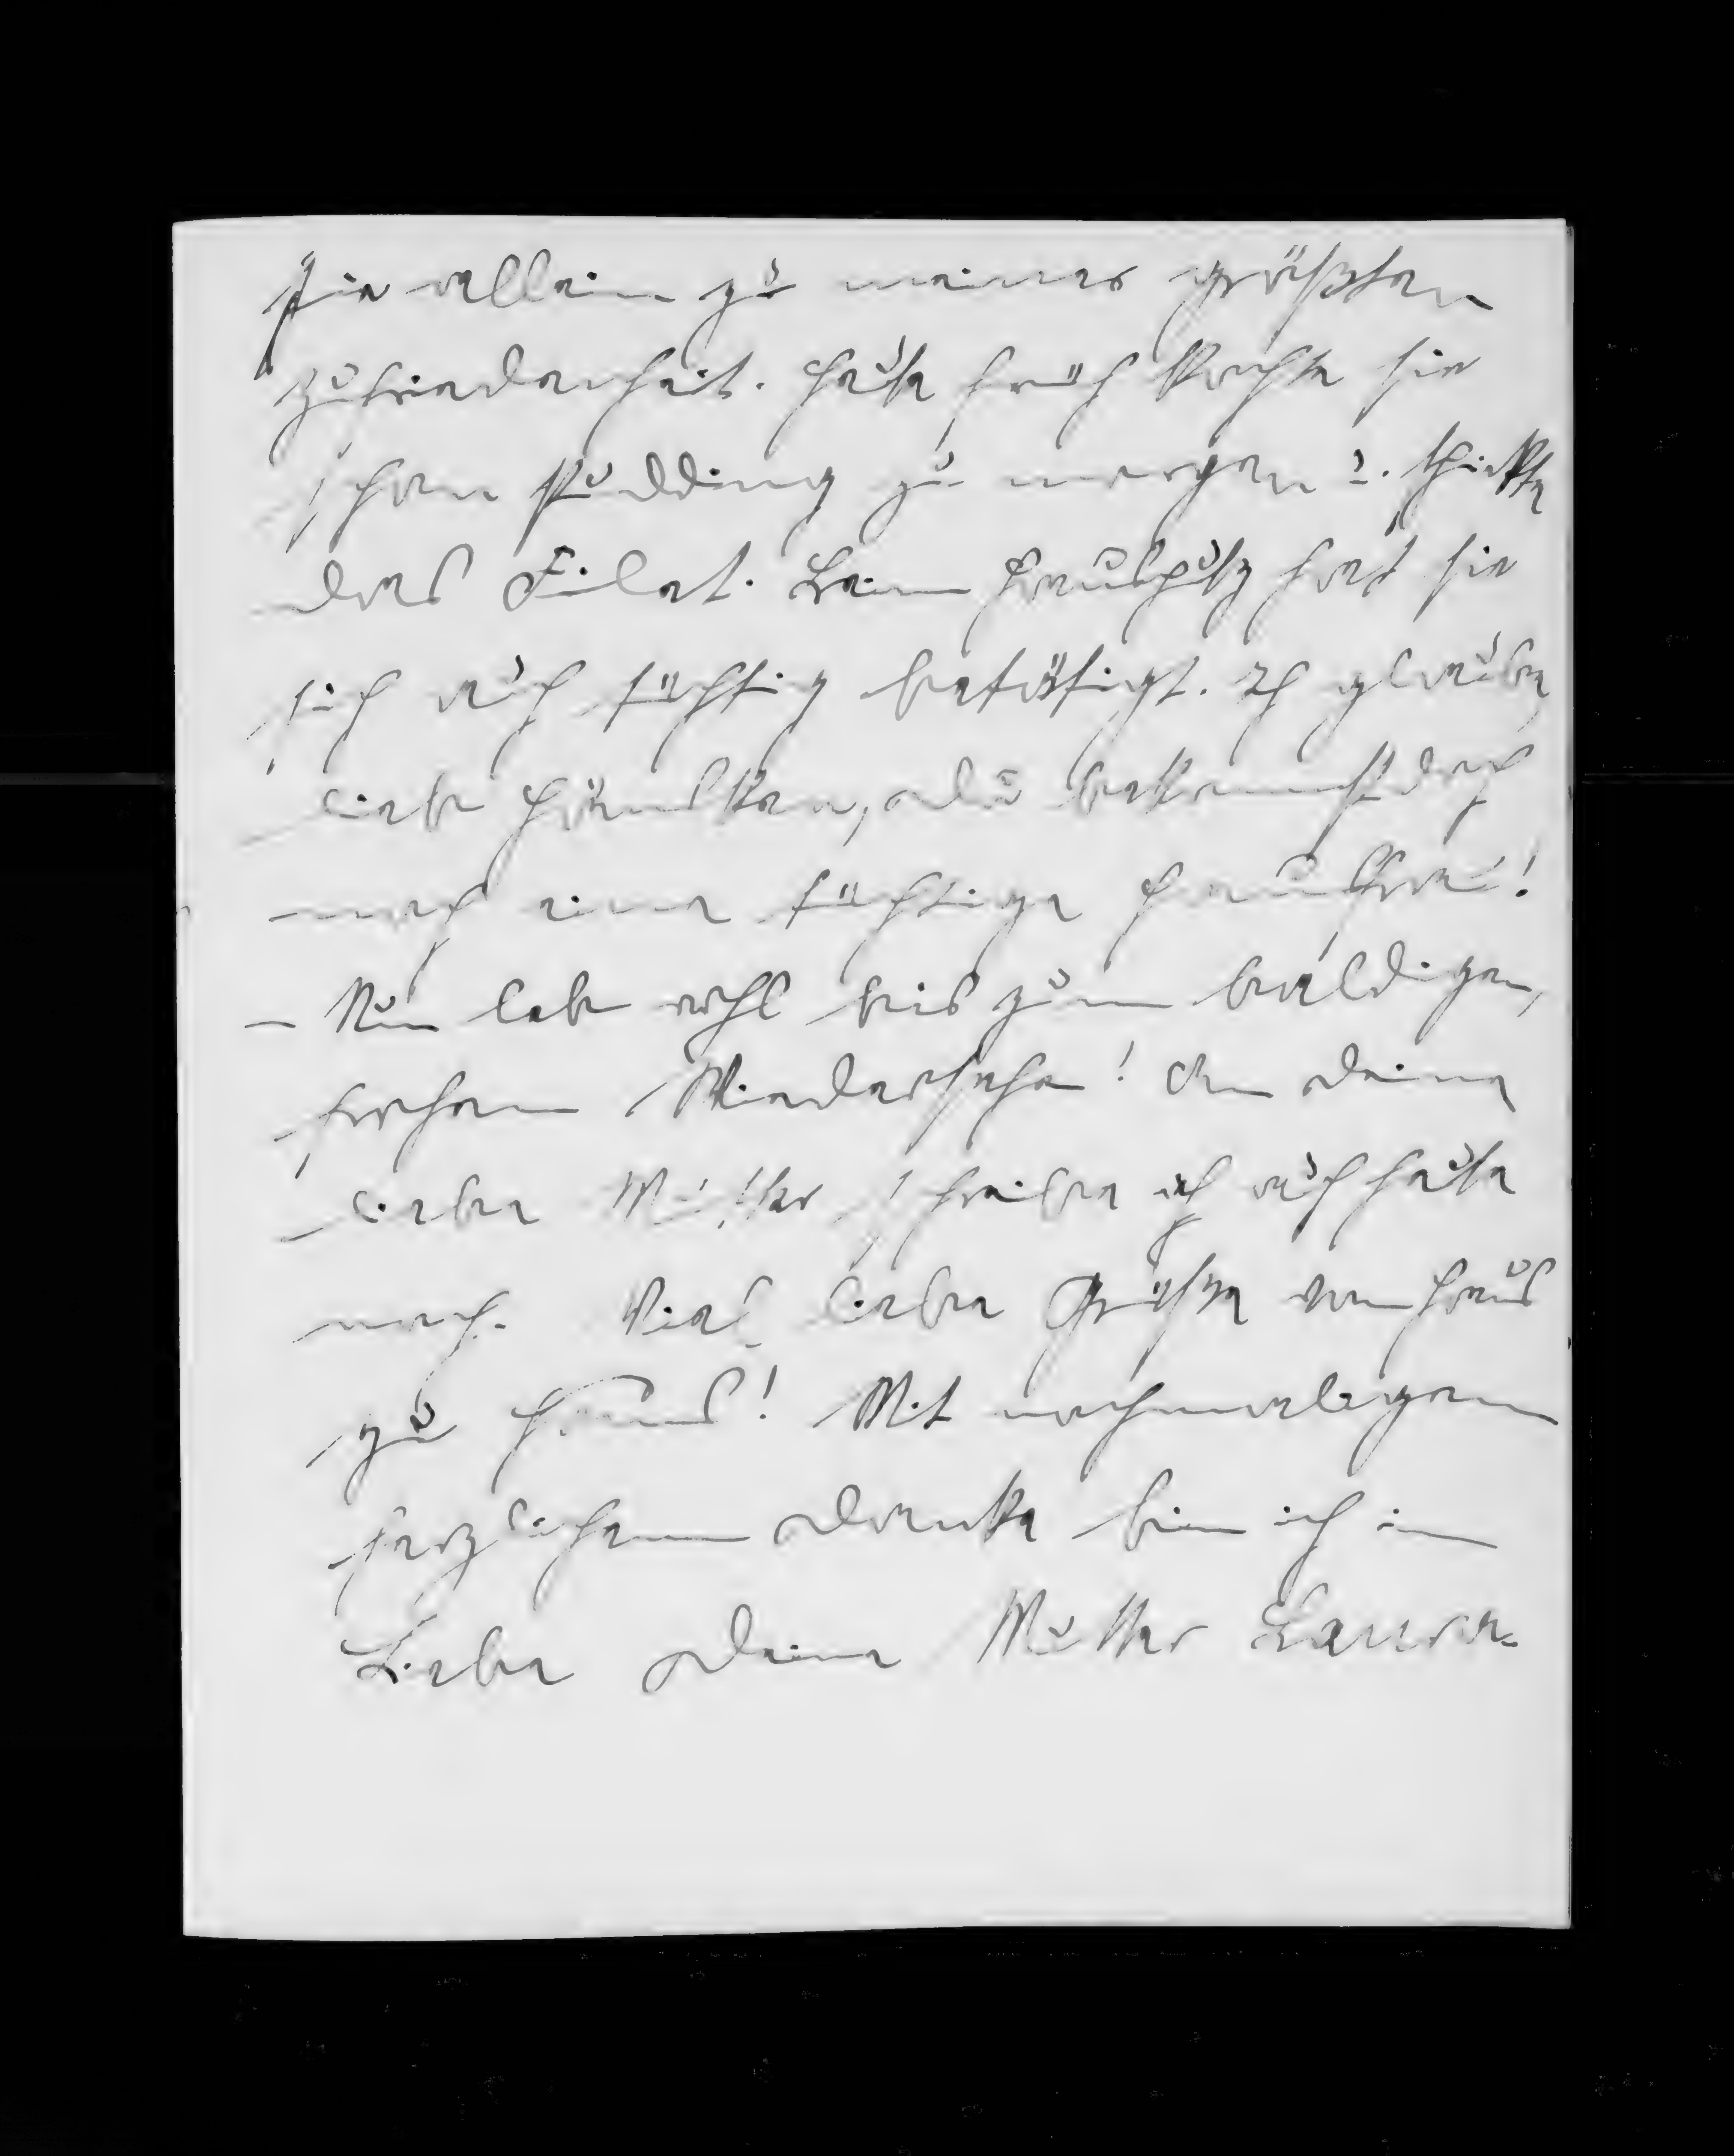 sie allein zu meiner größten
Zufriedenheit. Heute früh kochte sie
schon Pudding zu morgen u. spickte
das Filet. Beim Hausputz hat sie
sich auch tüchtig betätigt. Ich glaube,
lieb Hänschen, du bekommst doch
noch eine tüchtige Hausfrau!
– Nun lebe wohl bis zum baldigen,
frohen Wiedersehen! An deine
liebe Mutter schreibe ich auch heute
noch. Viel liebe Grüße von Haus
zu Haus! Mit nochmaligem
herzlichem Danke bin ich in
Liebe Deine Mutter Laura.